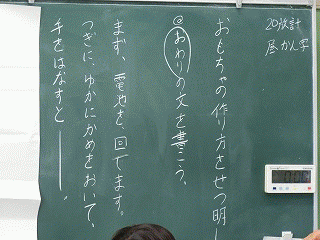 20役計
昼かん字
おもちゃの作り方をせつ明し
◎おわりの文を書こう。
まず、電池を、回てます。
つぎに、ゆかにかめをおいて、
手をはなすと――。